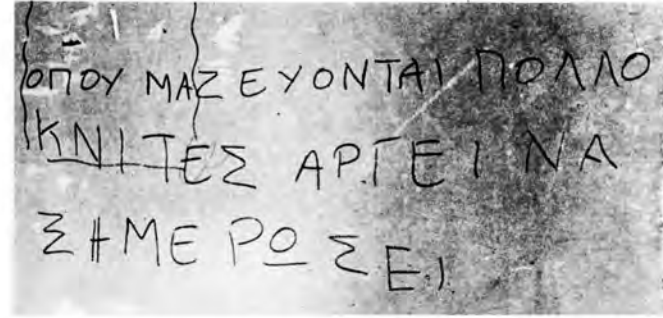 ΟΠΟΥ ΜΑΖΕΥΟΝΤΑΙ ΠΟΛΛΟ
ΚΝΙΤΕΣ ΑΡΓΕΙ ΝΑ
ΞΗΜΕΡΩΣΕΙ